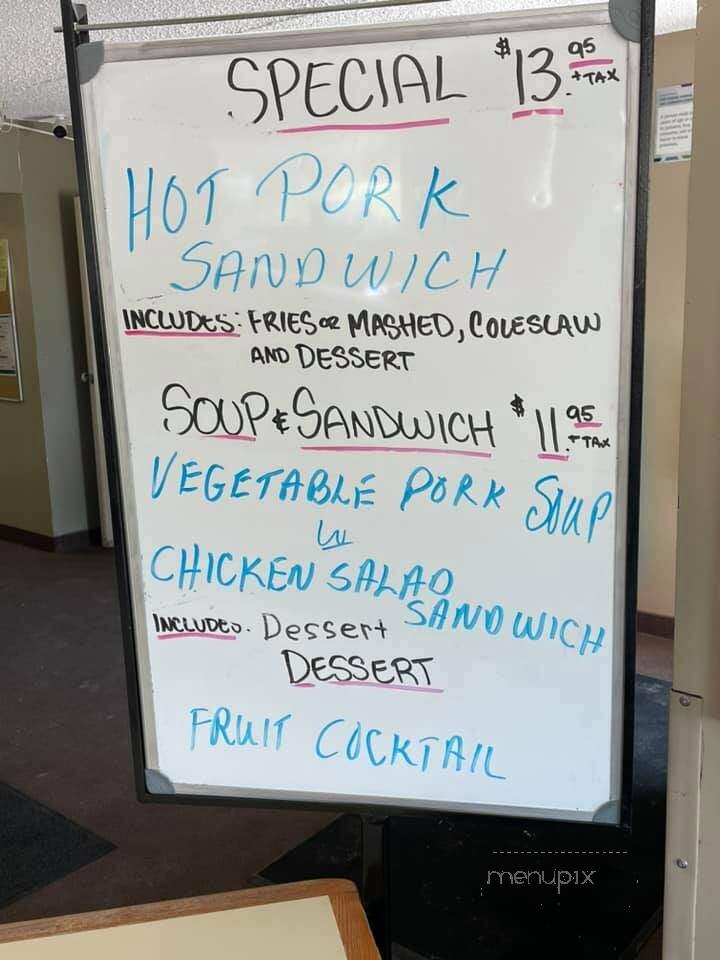 SPECIAL $13.95 + TAX
HOT PORK
SANDWICH
INCLUDES: FRIES OR MASHED, COLESLAW
AND DESSERT
SOUP & SANDWICH $11.95 + TAX
VEGETABLE PORK SOUP
W
CHICKEN SALAD
SANDWICH
INCLUDES. Dessert
DESSERT
FRUIT COCKTAIL
menupix